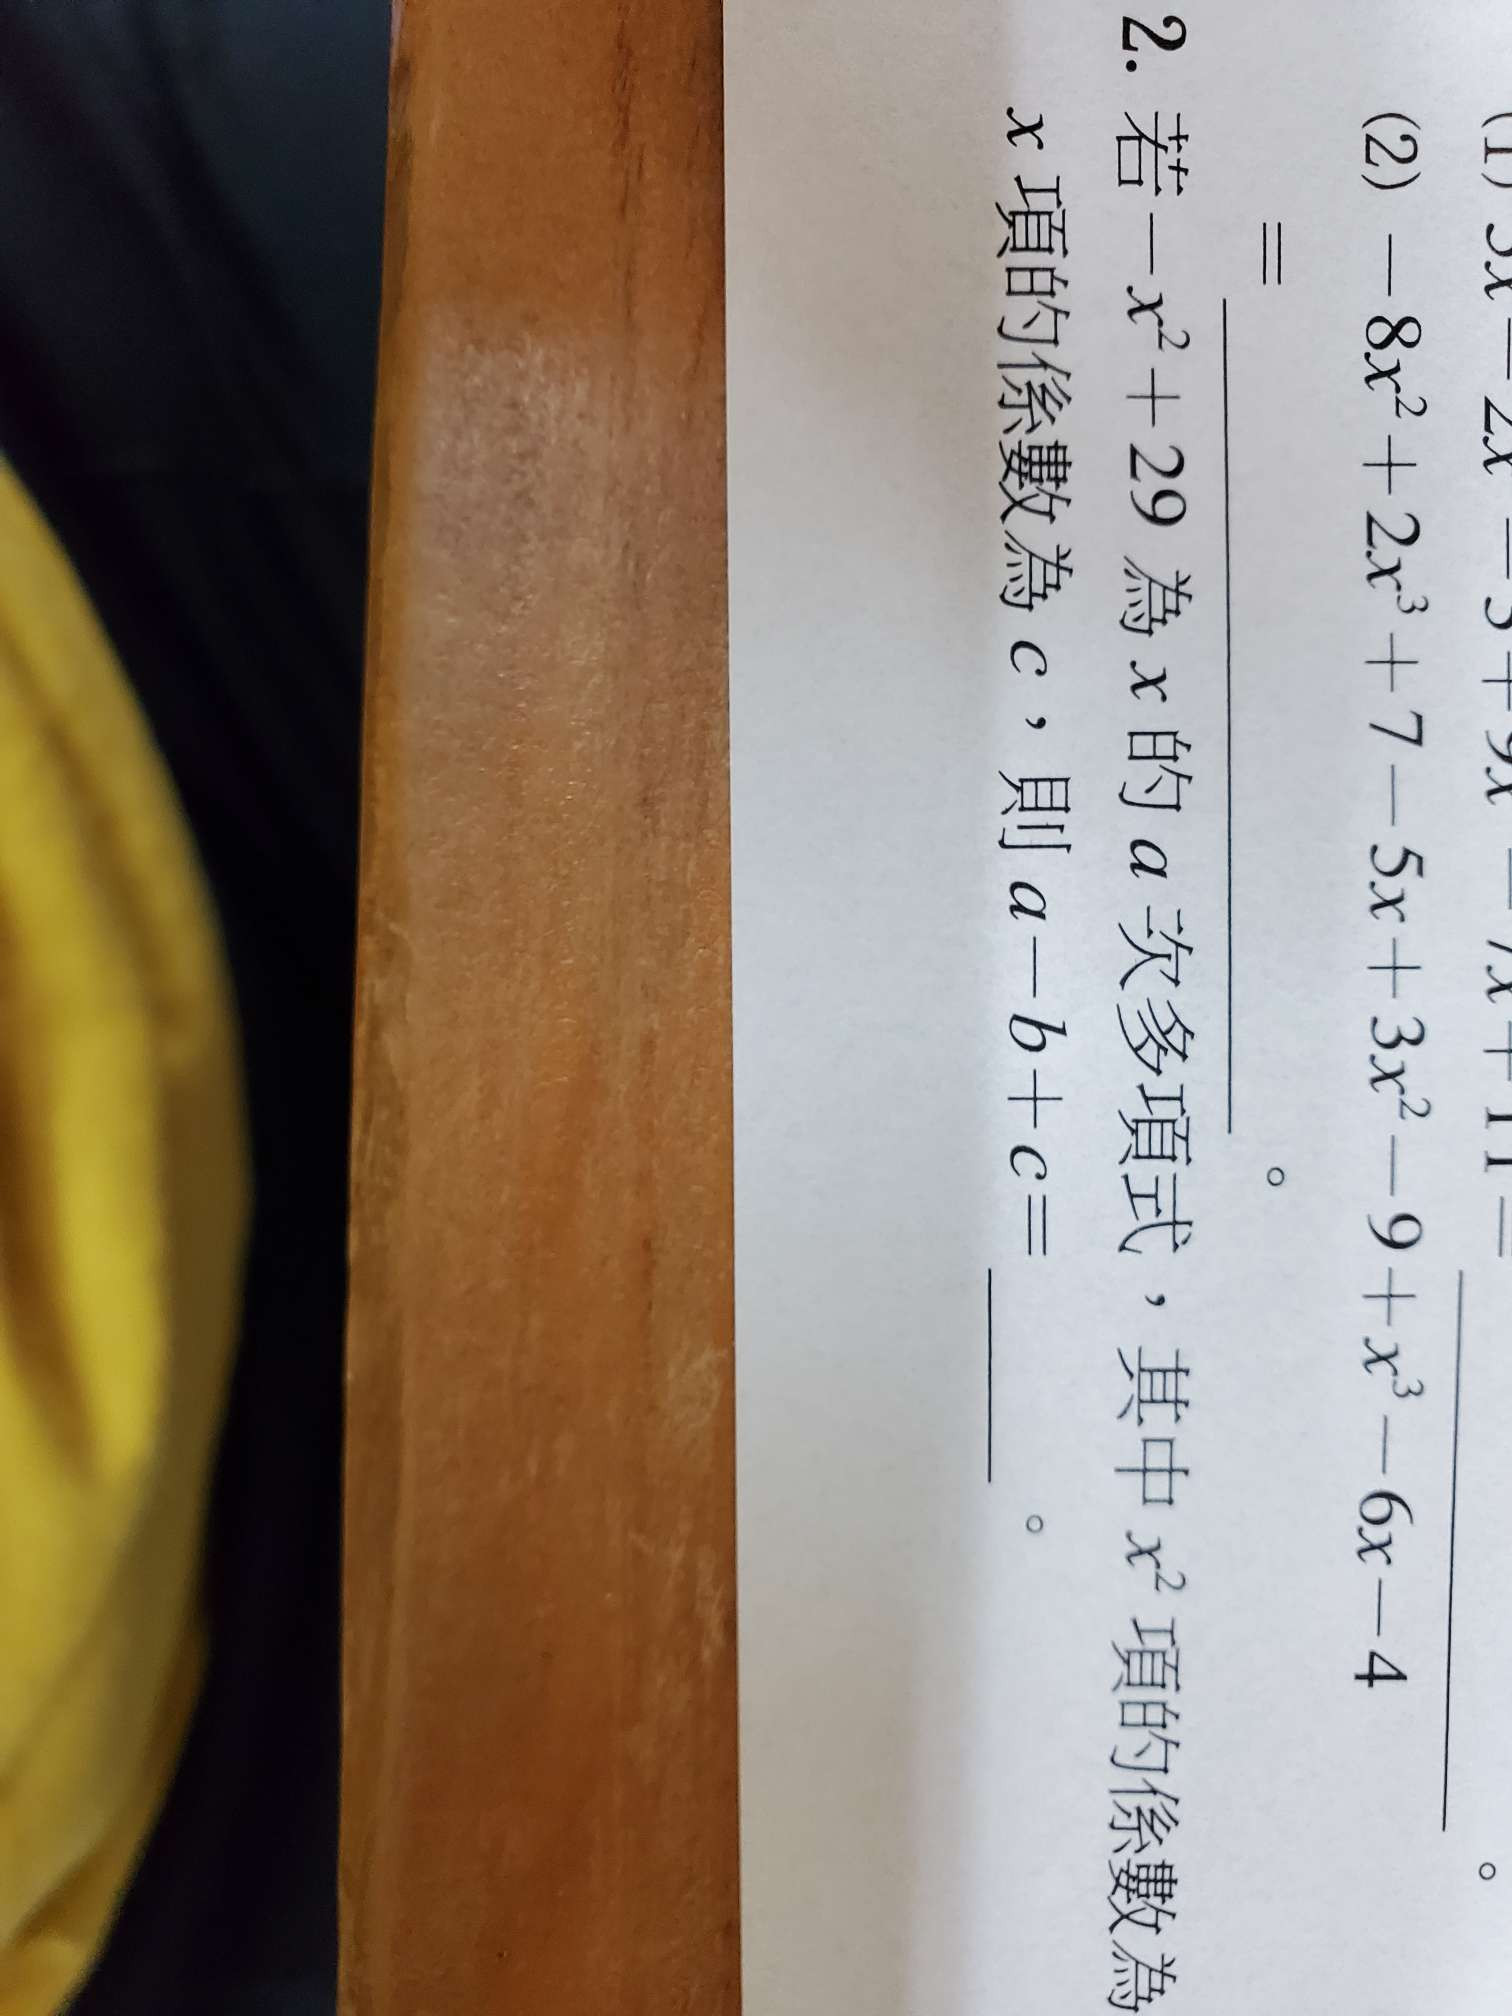 (2) －8x²＋2x³＋7－5x＋3x²－9＋x³－6x－4
＝ 。
2. 若－x²＋29 為 x 的 a 次多項式，其中 x² 項的係數為
x 項的係數為 c，則 a－b＋c＝ 。